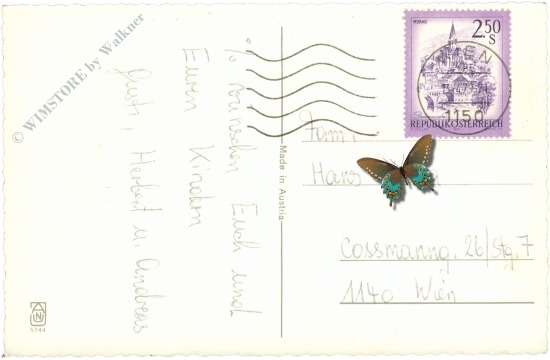 © WIMSTORE by Walkner
% wünschen Euch und
Euren Kindern
Gusti, Herbert u. Andreas
Made in Austria
MURAU
2.50
S
WIEN
1150
REPUBLIK ÖSTERREICH
Fam.
Hans
Cossmanng. 26/Stg. 7
1140 Wien
N
5744